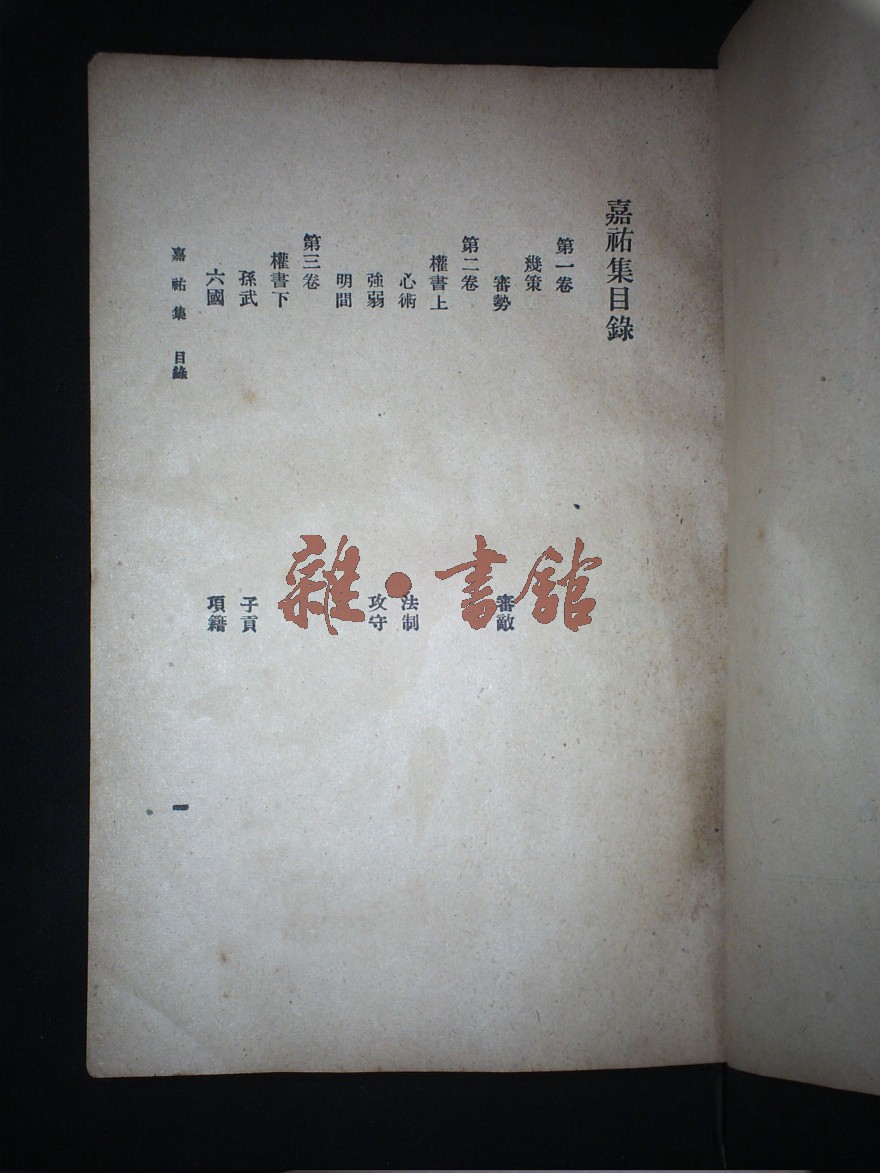 嘉祐集目錄
第一卷
幾策
審勢
審敵
第二卷
權書上
心術
法制
強弱
攻守
明間
第三卷
權書下
孫武
子貢
六國
項籍
嘉祐集 目錄
一
雜·書館